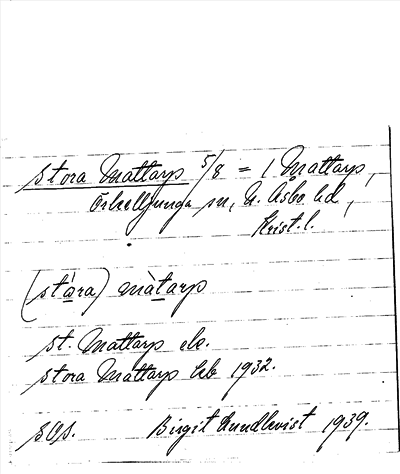 Stora Mattarp 5/8 = 1 Mattarp,
Örkelljunga sn, N. Åsbo hd,
Krist. l.
(stàra) màtarp
St. Mattarp
Stora Mattarp 1932.
SOS. Birgit Lundkvist 1939.